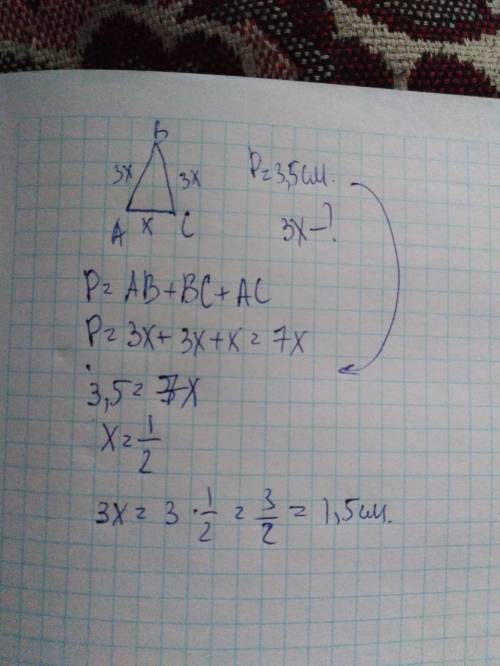 B
3x 3x P=3,5см.
A x C 3x-?
P= AB+BC+AC
P= 3x+3x+x= 7x
3,5= 7x
x= 1/2
3x= 3 · 1/2 = 3/2 = 1,5см.